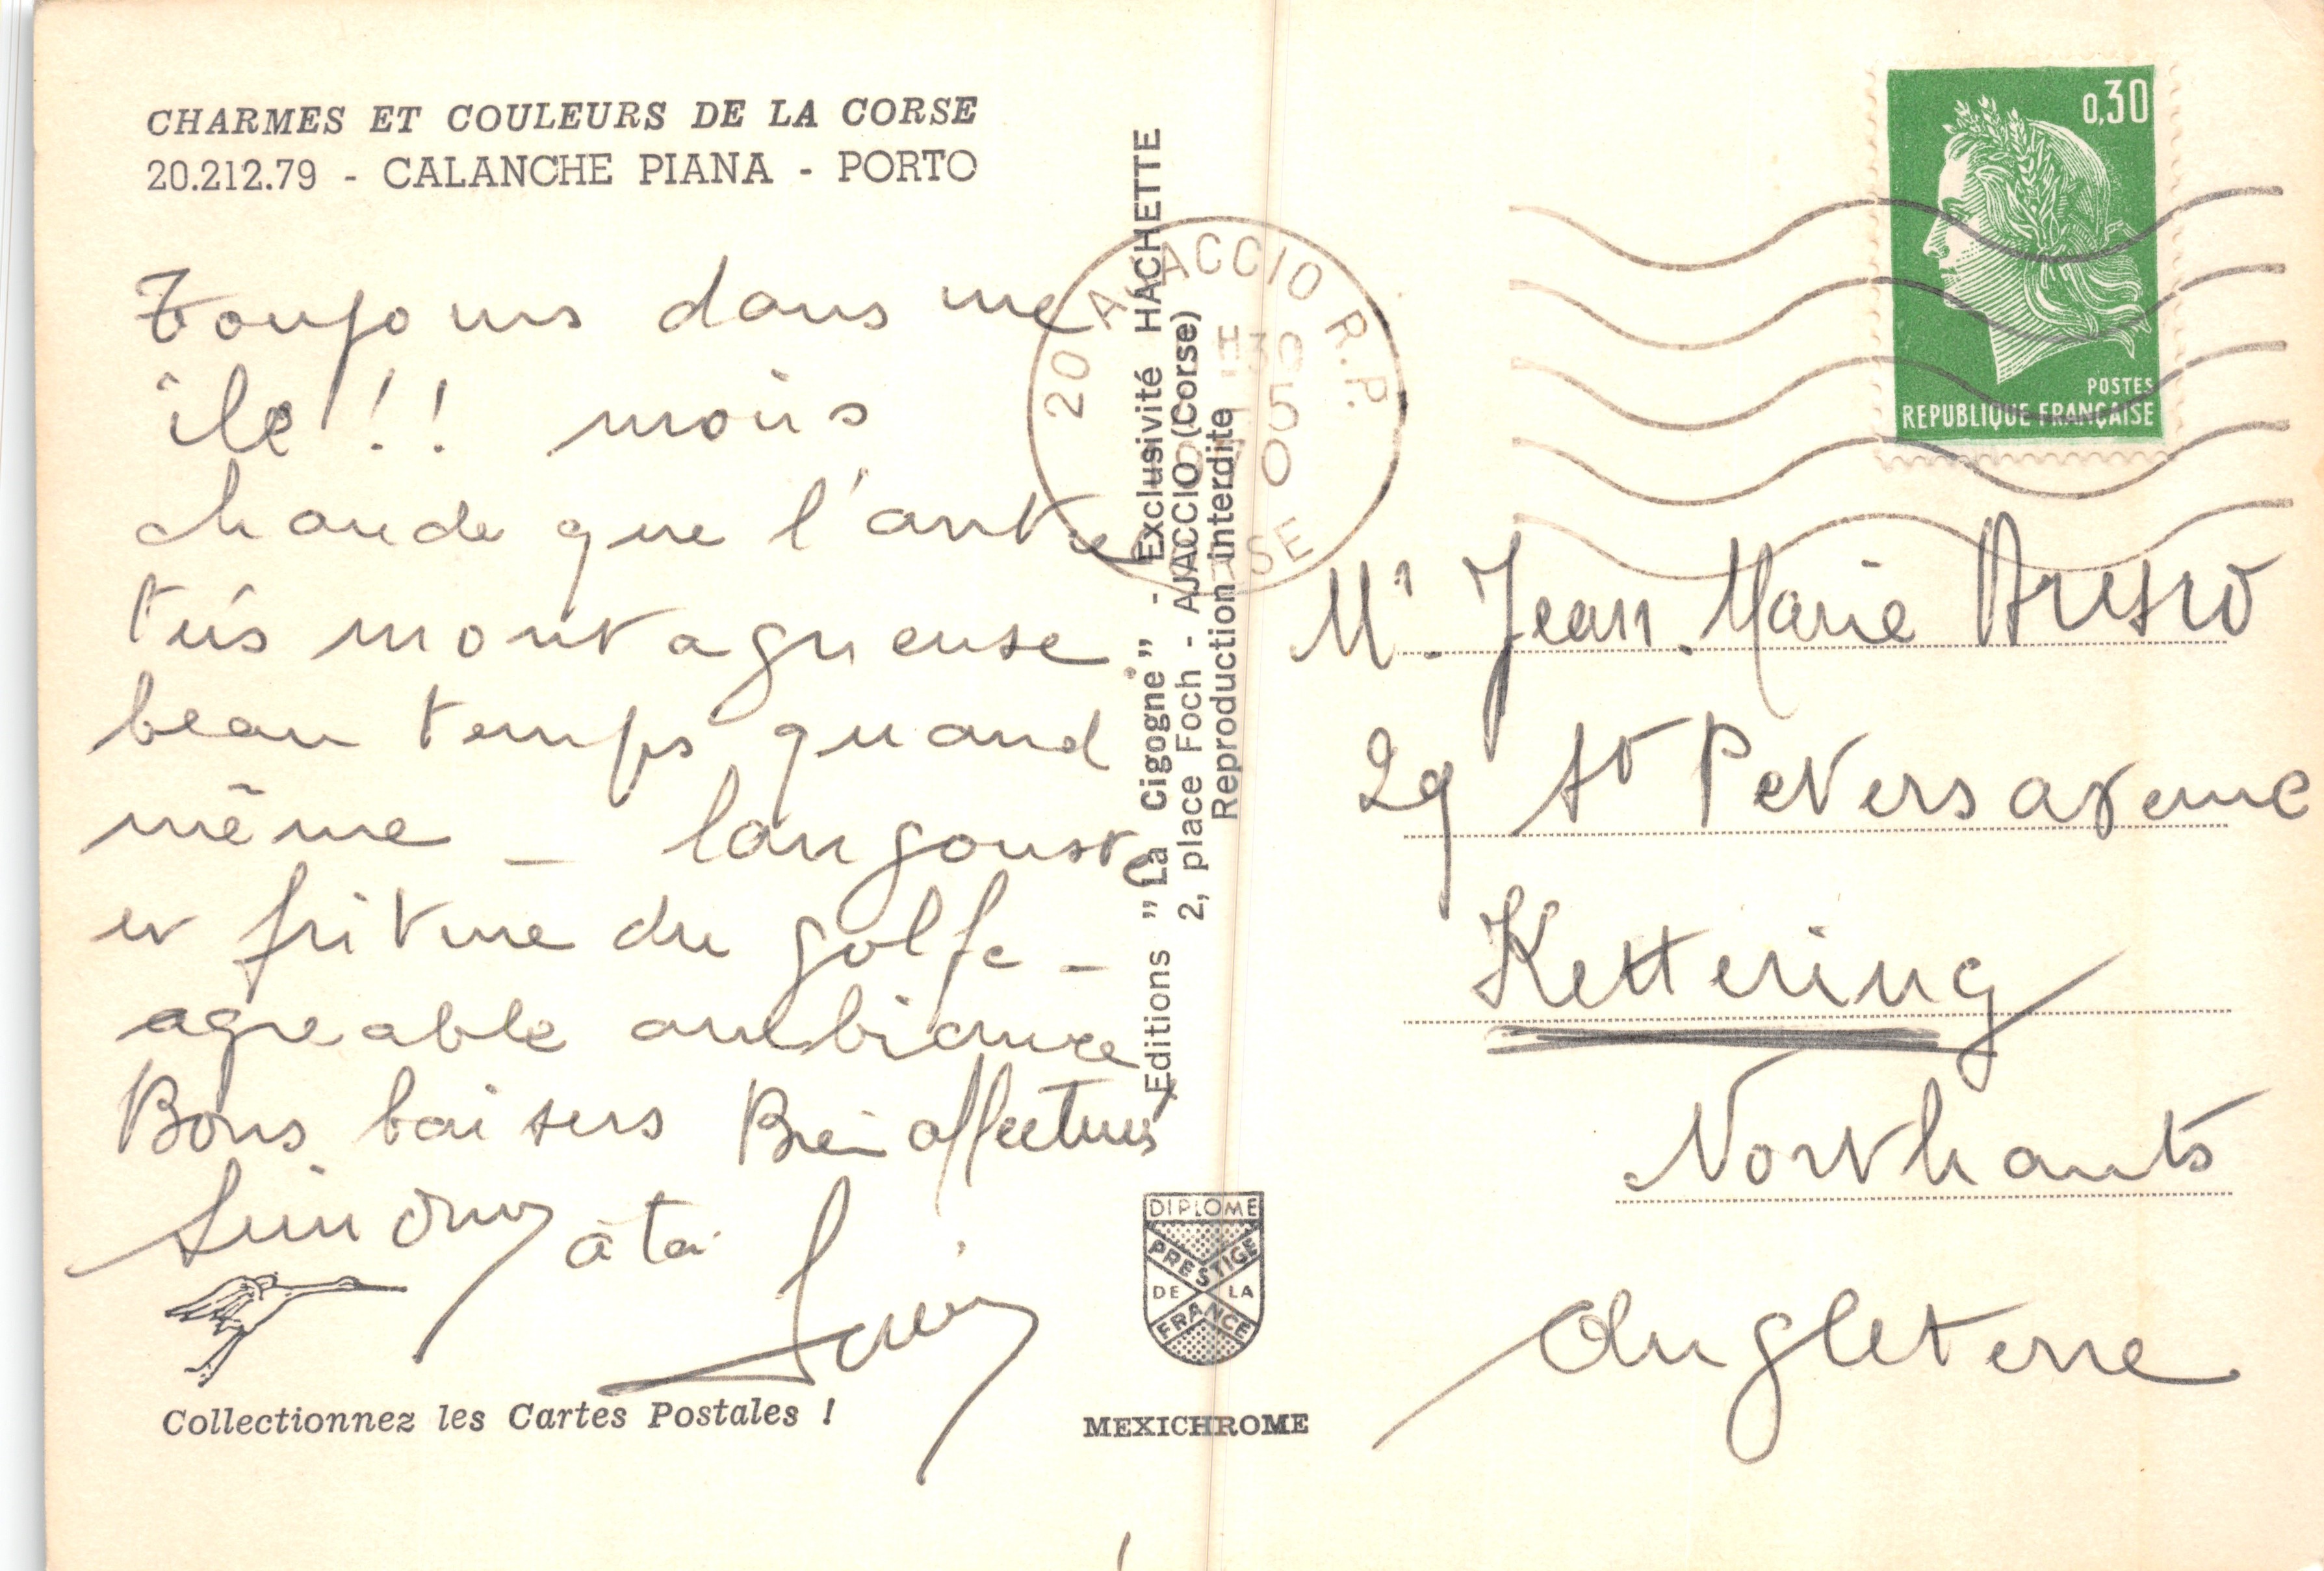 CHARMES ET COULEURS DE LA CORSE
20.212.79 - CALANCHE PIANA - PORTO
Toujours dans une
île !! moins
chaude que l'autre
très montagneuse
beau temps quand
même _ langouste
et friture du golfe _
agreable ambiance
Bons baisers Bien affectueux
à toi
Collectionnez les Cartes Postales !
Editions "La Cigogne" - Exclusivité HACHETTE
2, place Foch - AJACCIO (Corse)
Reproduction interdite
DIPLOME
PRESTIGE
DE LA
FRANCE
MEXICHROME
20 AJACCIO R.P.
0,30
POSTES
REPUBLIQUE FRANÇAISE
Mr. Jean. Marie
29 St Peters avenue
Kettering
Northants
Angleterre